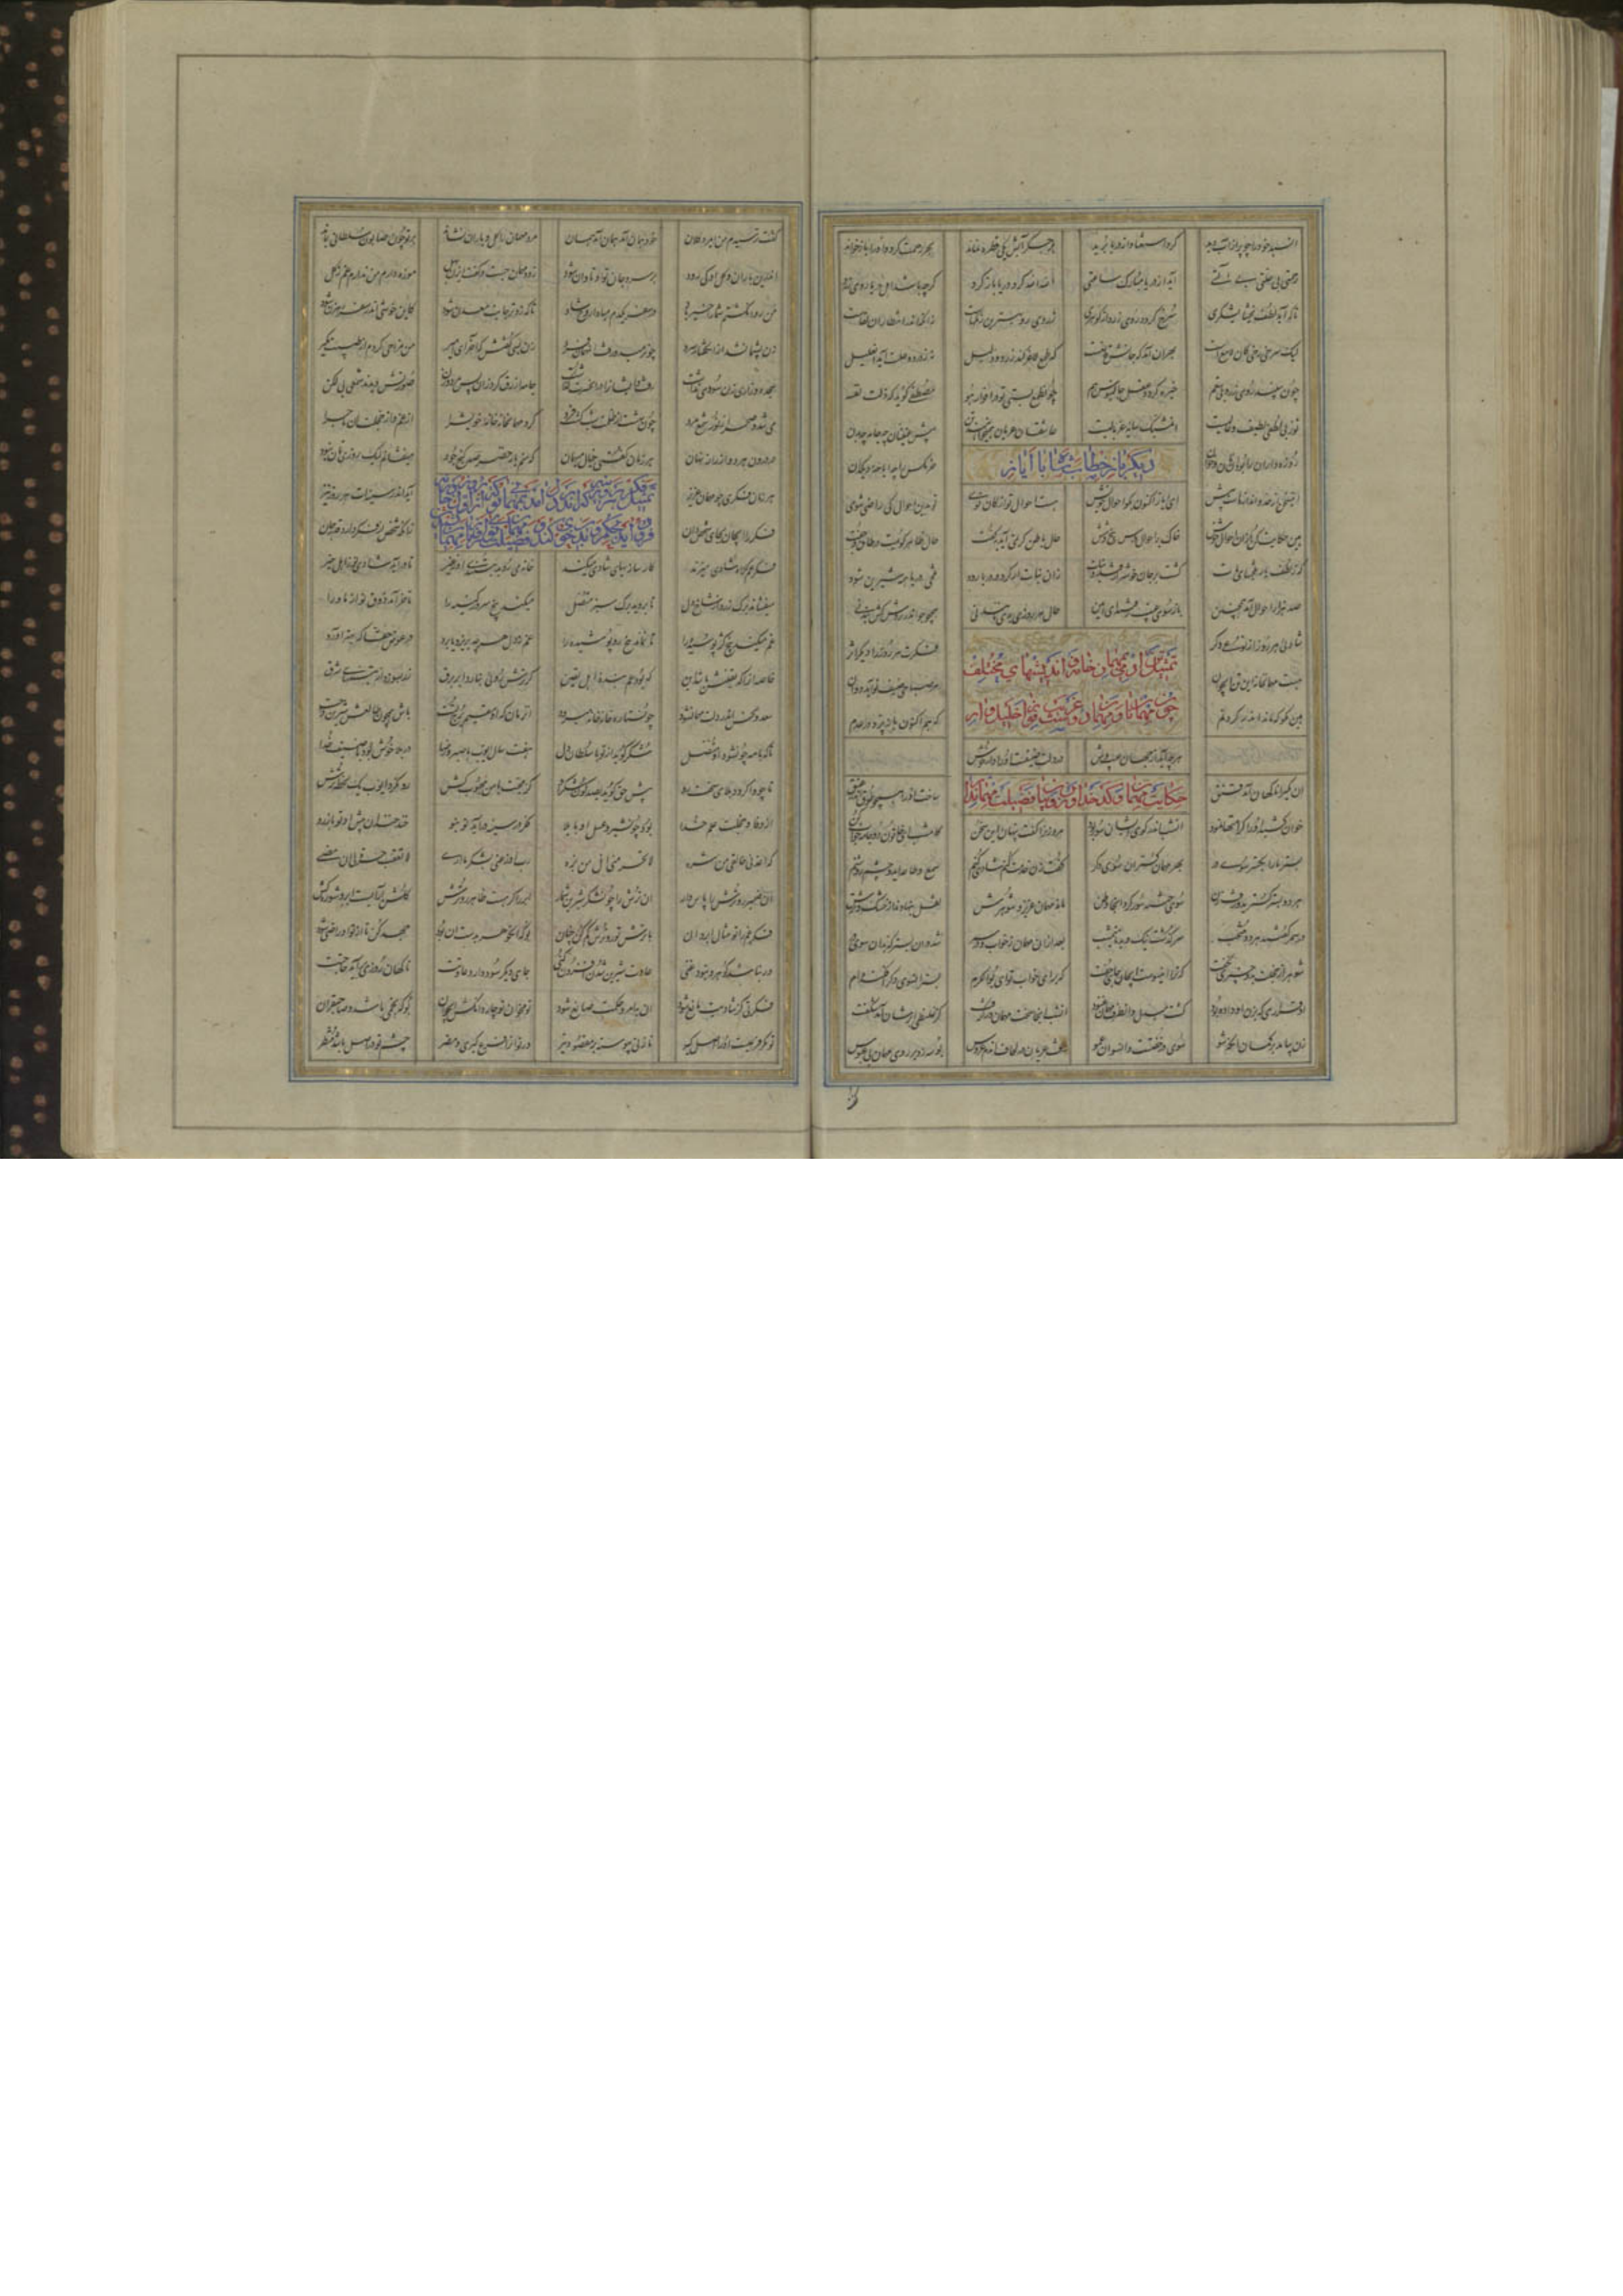 اسپید خود را چو پر از آب دید کرد استغنا و از دریا برید بر جگر آبش یکی قطره نماند بحر رحمت کرد و او را باز خواند
رحمتی بی علتی بی خدمتی آید از دریا مبارک ساعتی الله الله گرد دریا بار گرد گرچه باشند اهل دریا روی زرد
تا که آید لطف بخشایشگری سرخ گردد روی زرد از گوهری زردی رو بهترین رنگهاست زانکه اندر انتظار آن لقاست
لیک سرخی بر رخی کان لامع است بهر آن آمد که جانش قانعست که طمع لاغر کند زرد و ذلیل نه ز درد و علت آید او علیل
چون ببیند روی زرد بی سقم خیره گردد عقل جالینوس هم چون طمع بستی تو در انوار هو مصطفی گوید که ذلت نفسه
نور بی لطیف و عالیست آن مشبک سایه غربالیست عاشقان عریان همی خواهند تن پیش عنینان چه جامه چه بدن
روزه داران را بود آن نان و خوان خرمگس را چه ابا چه دیگدان
دیگر باز خطاب شاه با ایاز
این سخن از حد و اندازست بیش ای ایاز اکنون بگو احوال خویش هست احوال تو از کان نوی تو بدین احوال کی راضی شوی
هین حکایت کن از آن احوال خوش خاک بر احوال و درس پنج و شش حال باطن گر نمی آید بگفت حال ظاهر گویمت در طاق و جفت
که ز لطف یار تلخیهای مات گشت بر جان خوشتر از شکر نبات زان نبات ار گرد در دریا رود تلخی دریا همه شیرین شود
صد هزار احوال آمد همچنین باز سوی غیب رفتند ای امین حال هر روزی بدی مانند نی همچو جو اندر روش کش بند نی
شادی هر روز از نوعی دگر فکرت هر روز را دیگر اثر
تمثیل تن آدمی بمهمان خانه و اندیشهای مختلف
هست مهمانخانه این تن ای جوان هر صباحی ضیف نو آید دوان
چون مهمانان و مهمان غریب دوست چو خلیل وار
هین مگو که ماند اندر گردنم که هم اکنون باز پرد در عدم
هرچه آید از جهان غیب وش در دلت ضیفست او را دار خوش
حکایت مهمان و کدخدا و زن و بیان فضیلت مهمانداری
آن یکی را بیگهان آمد قنق ساخت او را همچو طوق اندر عنق
خوان کشید او را کرامتها نمود آن شب اندر کوی ایشان سور بود مرد زن را گفت پنهان این سخن کامشب ای خاتون دو جامه خواب کن
بستر ما را بگستر سوی در بهر مهمان گستر آن سوی دگر گفت زن خدمت کنم شادی کنم سمع و طاعه ای دو چشم روشنم
هر دو بستر گسترید و رفت زن سوی ختنه سور کرد آنجا وطن ماند مهمان عزیز و شوهرش نقل بنهادند از خشک و ترش
در سمر گفتند هر دو منتجب سرگذشت نیک و بد تا نیم شب بعد از آن مهمان ز خواب و از سمر شد در آن بستر که بد آن سوی در
شوهر از خجلت بدو چیزی نگفت که ترا این سوست ای جان جای خفت که برای خواب تو ای بوالکرم بستر آن سوی دگر افکنده ام
آن قراری که بزن او داده بود گشت مبدل و آن طرف مهمان غنود آن شب آنجا سخت باران در گرفت کز غلیظی ابرشان آمد شگفت
زن بیامد بر گمان آنکه شو سوی در خفتست و آن سو آن عمو رفت عریان در لحاف آن دم عروس بوسه زد بر روی مهمان بی عبوس
گفت ترسیدم من ای مرد کلان خود همان آمد همان آمد همان مرد مهمان را گل و باران نشاند بر تو چون صابون سلطانی بماند
اندرین باران و گل او کی رود بر سر و جان تو او تاوان شود زود مهمان جست و گفت ای زن بهل موزه دارم من ندارم غم ز گل
من روان گشتم شما را خیر باد در سفر یکدم مبادا روح شاد تا که زوتر جانب معدن رود کاین خوشی اندر سفر رهزن شود
زن پشیمان شد از آن گفتار سرد چون رمید و رفت آن مهمان فرد زن بسی گفتش که آخر ای امیر من مزاحی کردم از طیبت مگیر
سجده و زاری زن سودی نداشت رفت و ایشان را در آن حسرت گذاشت جامه ازرق کرد زان پس مرد و زن صورتش دیدند شمعی بی لگن
می شد و صحرا ز نور شمع مرد چون بهشت از ظلمت شب گشته فرد کرد مهمانخانه خانه خویش را از غم و از خجلت این ماجرا
در درون هر دو از راه نهان هر زمان گفتی خیال میهمان که منم یار خضر صد گنج جود میفشاندم لیک روزیتان نبود
هر زمان فکری چو مهمان عزیز آید اندر سینه ات هر روز نیز
فکر را ای جان بجای شخص دان زانکه شخص از فکر دارد قدر جان
فکر غم گر راه شادی میزند کارسازیهای شادی میکند خانه می روبد بتندی او ز غیر تا در آید شادی نو ز اصل خیر
میفشاند برگ زرد از شاخ دل تا بروید برگ سبز متصل میکند بیخ سرور کهنه را تا خرامد ذوق نو از ماورا
غم کند بیخ کژ پوسیده را تا نماند بیخ رو پوشیده را غم ز دل هر چه بریزد یا برد در عوض حقا که بهتر آورد
خاصه آن را که یقینش باشد این که بود غم بنده اهل یقین گر ترش رویی نیارد ابر و برق رز بسوزد از تبسمهای شرق
سعد و نحس اندر دلت مهمان شود چون ستاره خانه خانه میرود آن زمان که او مقیم برج تست باش همچون طالعش شیرین و چست
تا که با مه چون شود او متصل شکر گوید از تو با سلطان دل هفت سال ایوب با صبر و رضا در بلا خوش بود با ضیف خدا
تا چو وا گردد بلای سخت رو پیش حق گوید بصد گون شکر او کز محبت با من محبوب کش رو نکرد ایوب یک لحظه ترش
از وفا و خجلت علم خدا بود چون شیر و عسل او با بلا فکر در سینه درآید نو بنو خند خندان پیش او تو باز رو
که اعذنی خالقی من شره لا تحرمنی انل من بره رب اوزعنی لشکر ما اری لا تعقب حسرة لی ان مضی
آن ضمیر رو ترش را پاس دار آن ترش را چون شکر شیرین شمار ابر را گر هست ظاهر رو ترش گلشن آرنده است ابر و شوره کش
فکر غم را تو مثال ابر دان با ترش تو رو ترش کم کن چنان بوک آن گوهر بدست او بود جهد کن تا از تو او راضی شود
ور نباشد گوهر و نبود غنی عادت شیرین خود افزون کنی جای دیگر سود دارد عادتت ناگهان روزی برآید حاجتت
فکرتی کز شادیت مانع شود آن بامر و حکمت صانع شود تو مخوان دو چار دانگش ای جوان بوک نجمی باشد و صاحبقران
تو مگو فرعیست او را اصل گیر تا بوی پیوسته بر مقصود چیر ور تو آن را فرع گیری و مضر چشم تو در اصل باشد منتظر